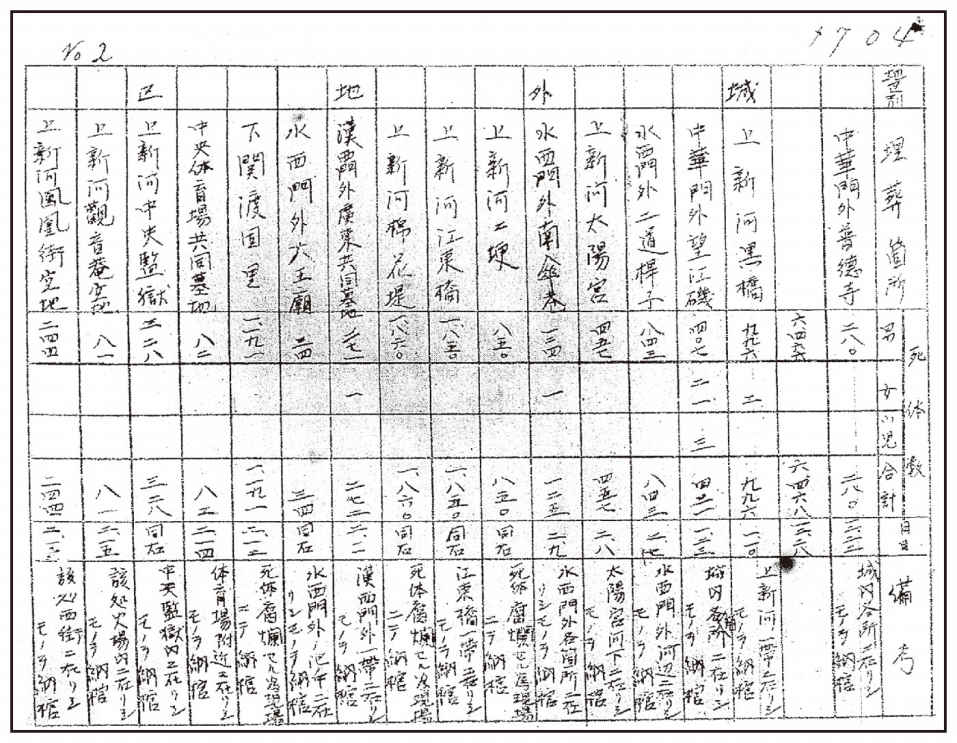 No 2
1704
区別
埋葬箇所
死体数
男
女
小児
合計
月日
備考
城外地区
中華門外普德寺 二八〇 二八〇 一二・二二 城内各所ニ在リシモノヲ納棺
六四六八 一二・二八
上新河黒橋 九九六 二 九九六 一・一〇 上新河一帯ニ在リシモノヲ納棺
中華門外望江磯 四〇七 二一 三 城内各所ニ在リシモノヲ納棺
水西門外二道桿子 八四三 八四三 水西門外河辺ニ在リシモノヲ納棺
上新河太陽宮 四五七 四五七 二・八 太陽宮河下ニ在リシモノヲ納棺
水西門外南傘巷 一二四 一 一二五 二・九 水西門外各箇所ニ在リシモノヲ納棺
上新河二埂 八五〇 八五〇 死体腐爛セル為現場ニテ納棺
上新河江東橋 一、八五〇 一、八五〇 同右 江東橋一帯ニ在リシモノヲ納棺
上新河棉花堤 一、八六〇 一、八六〇 同右 死体腐爛セル為現場ニテ納棺
漢西門外廣東共同墓地 二七一 一 二七二 二・一一 漢西門外一帯ニ在リシモノヲ納棺
水西門外大王廟 三四 三四 同右 水西門外ノ池中ニ在リシモノヲ納棺
下関渡固里 一、一九一 一、一九一 二・一二 死体腐爛セル為現場ニテ納棺
中央体育場共同墓地 八二 八二 二・一四 体育場附近ニ在リシモノヲ納棺
上新河中央監獄 三二八 三二八 同右 中央監獄内ニ在リシモノヲ納棺
上新河觀音菴空地 八一 八一 二・一五 該処火場内ニ在リシモノヲ納棺
上新河鳳凰街空地 二四四 二四四 該処西街ニ在リシモノヲ納棺